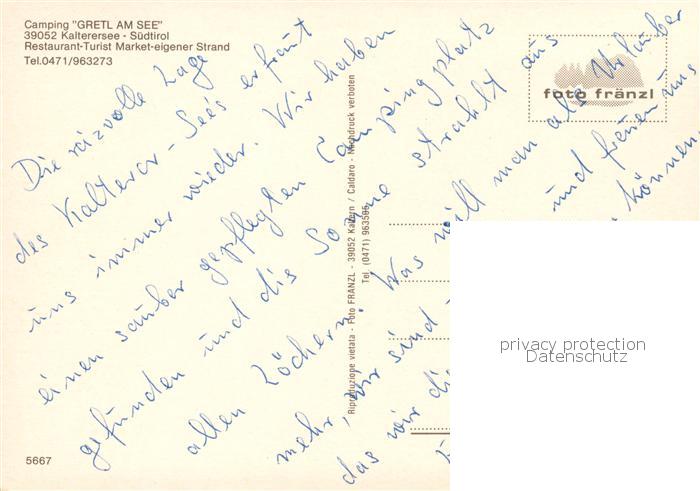 Camping "GRETL AM SEE"
39052 Kalterersee - Südtirol
Restaurant-Turist Market-eigener Strand
Tel.0471/963273
foto fränzl
Die raizvolle Lage
des Kalterer-See's erfaut
uns immer wieder. Wir haben
einen sauber gepflegten Campingplatz
gefunden und die Sonne strahlt aus
allen Löchern. Was will man als Urlauber
mehr, wir sind und freuen uns
das wir di können
Riproduzione vietata - Foto FRÄNZL - 39052 Kaltern / Caldaro - Nachdruck verboten
Tel. (0471) 963585
privacy protection
Datenschutz
5667